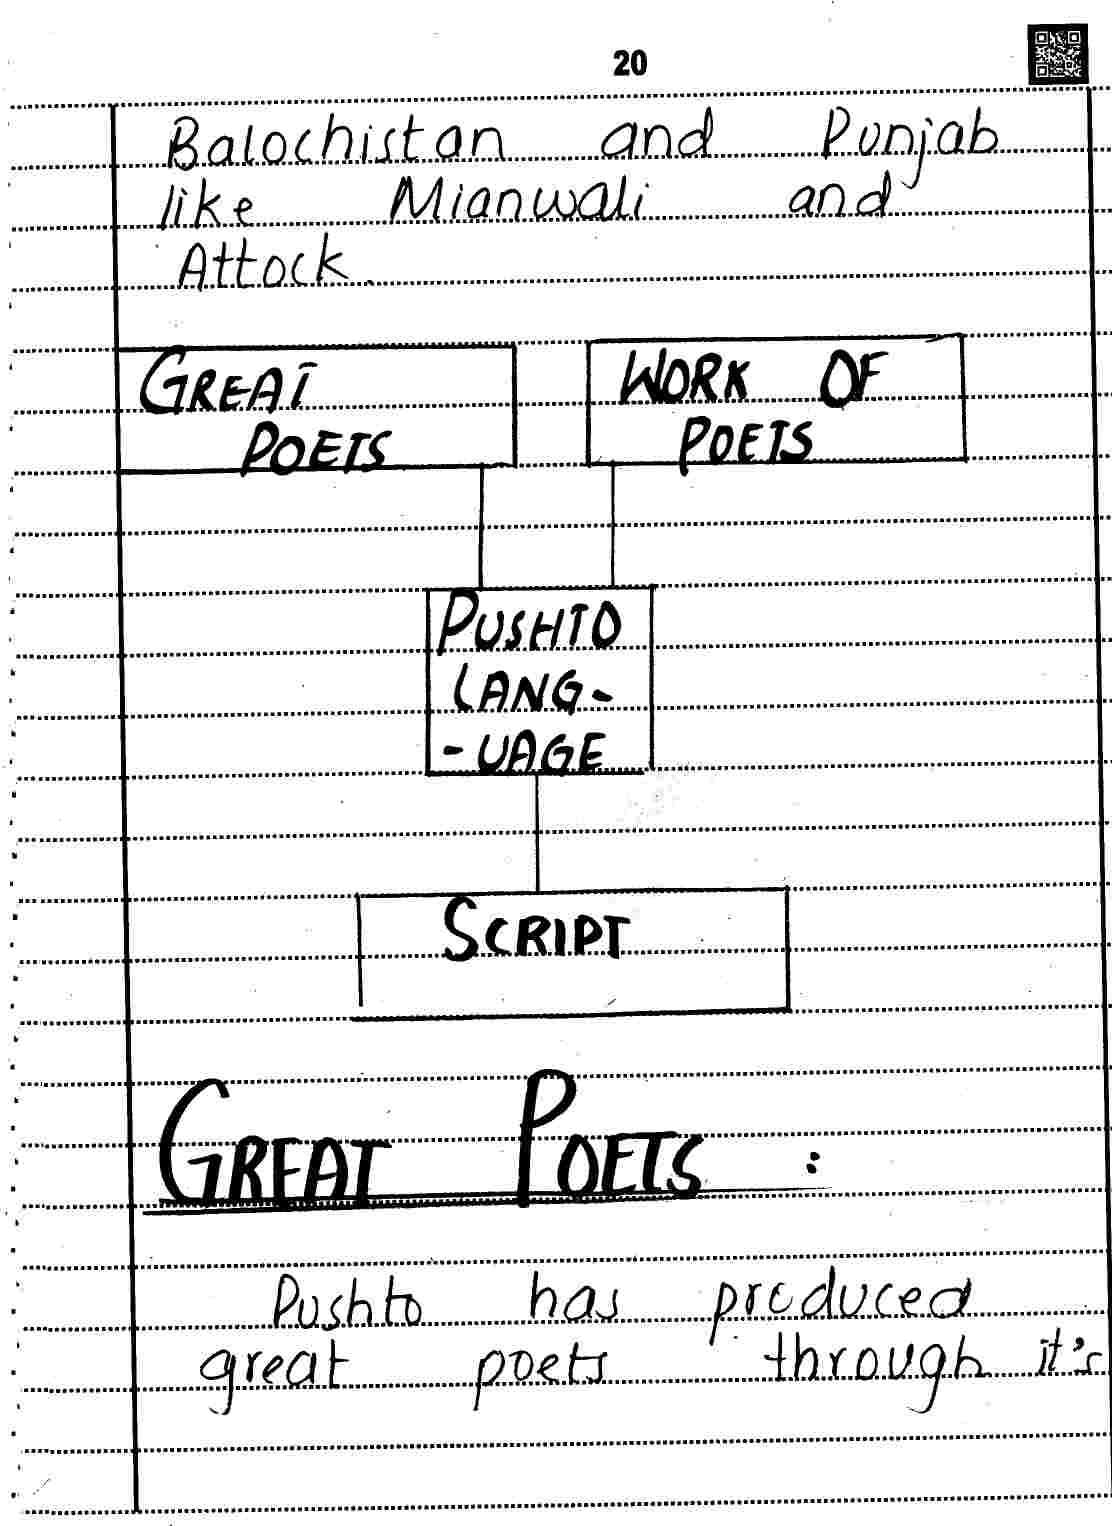 20
Balochistan and Punjab
like Mianwali and
Attock.
GREAT
POETS
WORK OF
POETS
PUSHTO
LANG-
-UAGE
SCRIPT
GREAT POETS :
Pushto has produced
great poets through it's